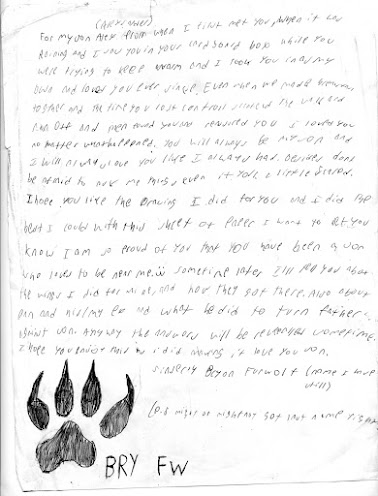 For my son Alex from when I first met you, when it was
raining and I saw you in your cardboard box while you
were trying to keep warm and I took you in as my
own and loved you ever since. Even when we made brownies
together and the time you lost control and
ran off and men I loved you
no matter what happened. You will always be my son and
I will always love you like I always had. Besides dont
be afraid to ask me things even if your a little scared.
I hope you like the drawing I did for you and I did the
best I could with this sheet of Paper I want to let you
know I am so proud of you that you have been a son
who loves to be near me. sometime later I'll tell you about
the wings I did for and how they got there. Also about
and his and what he did to turn father
against son. Anyway the answers will be sometime.
I hope you enjoy this as i did making it love you son.
sincerly Bryon Furwolf (
will)
( might or might not got that name right)
BRY FW